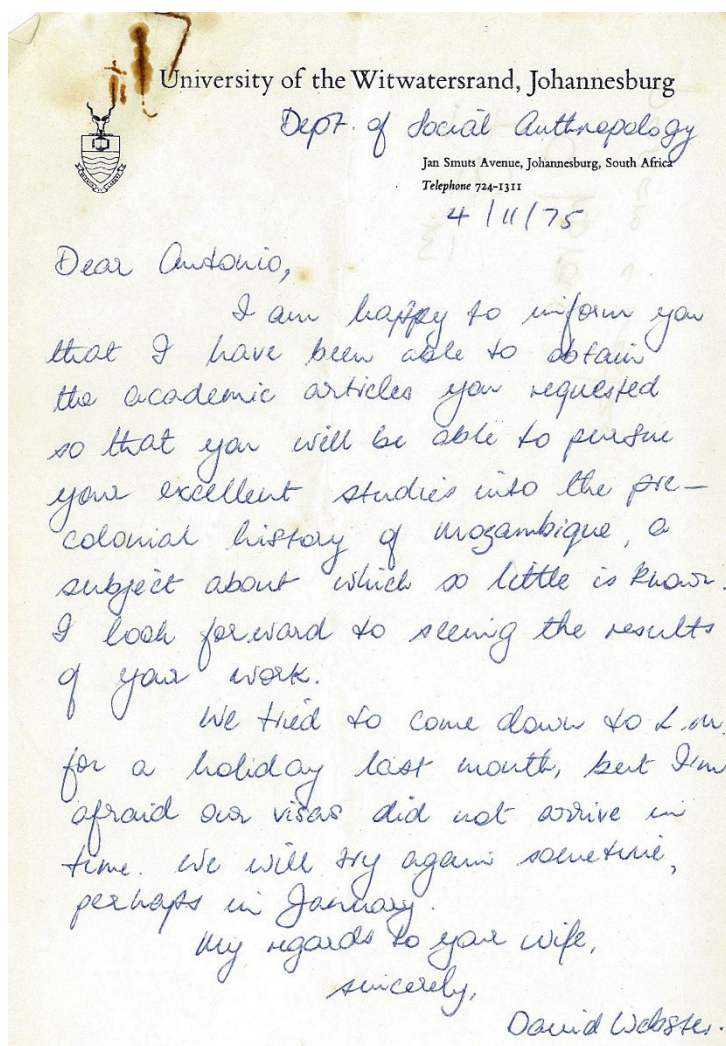 University of the Witwatersrand, Johannesburg
Dept. of Social Anthropology
Jan Smuts Avenue, Johannesburg, South Africa
Telephone 724-1311
4/11/75
Dear Antonio,
I am happy to inform you
that I have been able to obtain
the academic articles you requested
so that you will be able to pursue
your excellent studies into the pre-
colonial history of Mozambique, a
subject about which so little is known.
I look forward to seeing the results
of your work.
We tried to come down to L.M.
for a holiday last month, but I'm
afraid our visas did not arrive in
time. We will try again sometime,
perhaps in January.
My regards to your wife,
sincerely,
David Webster.